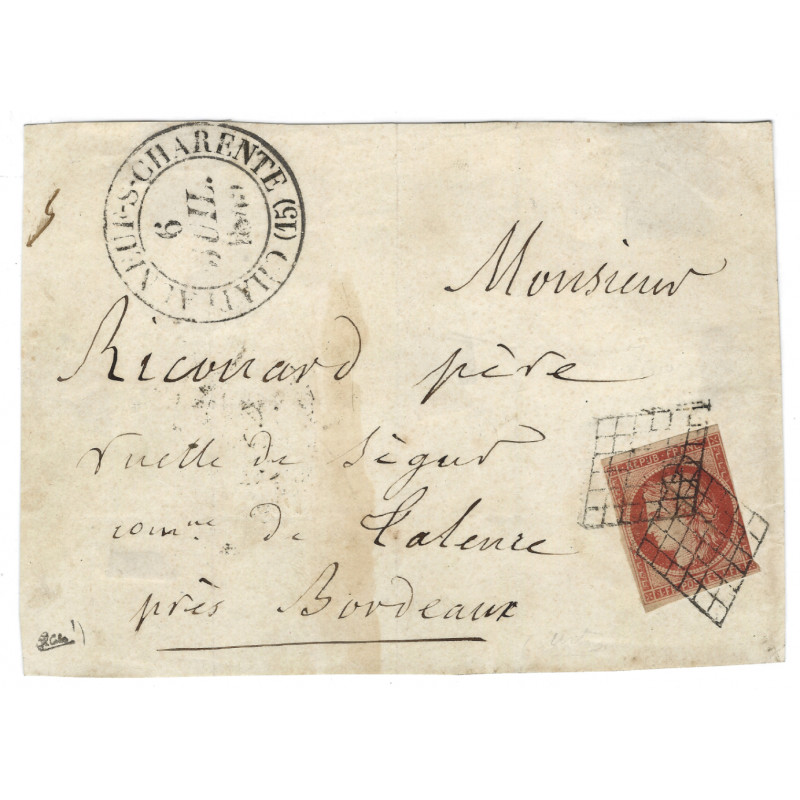 CHATEAUNEUF-S-CHARENTE (15)
6
JUIL.
Monsieur
Ricouard père
ruelle de Ségur
comne de Talence
près Bordeaux
REPUB. FRANC.
1.F. POSTES 1.F.